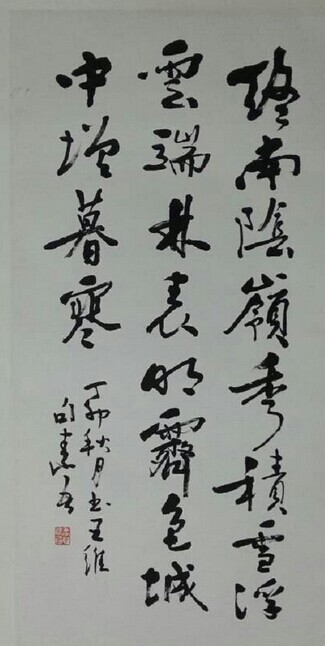 終南陰嶺秀積雪浮
雲端林表明霽色城
中增暮寒
丁卯秋月书王維
句